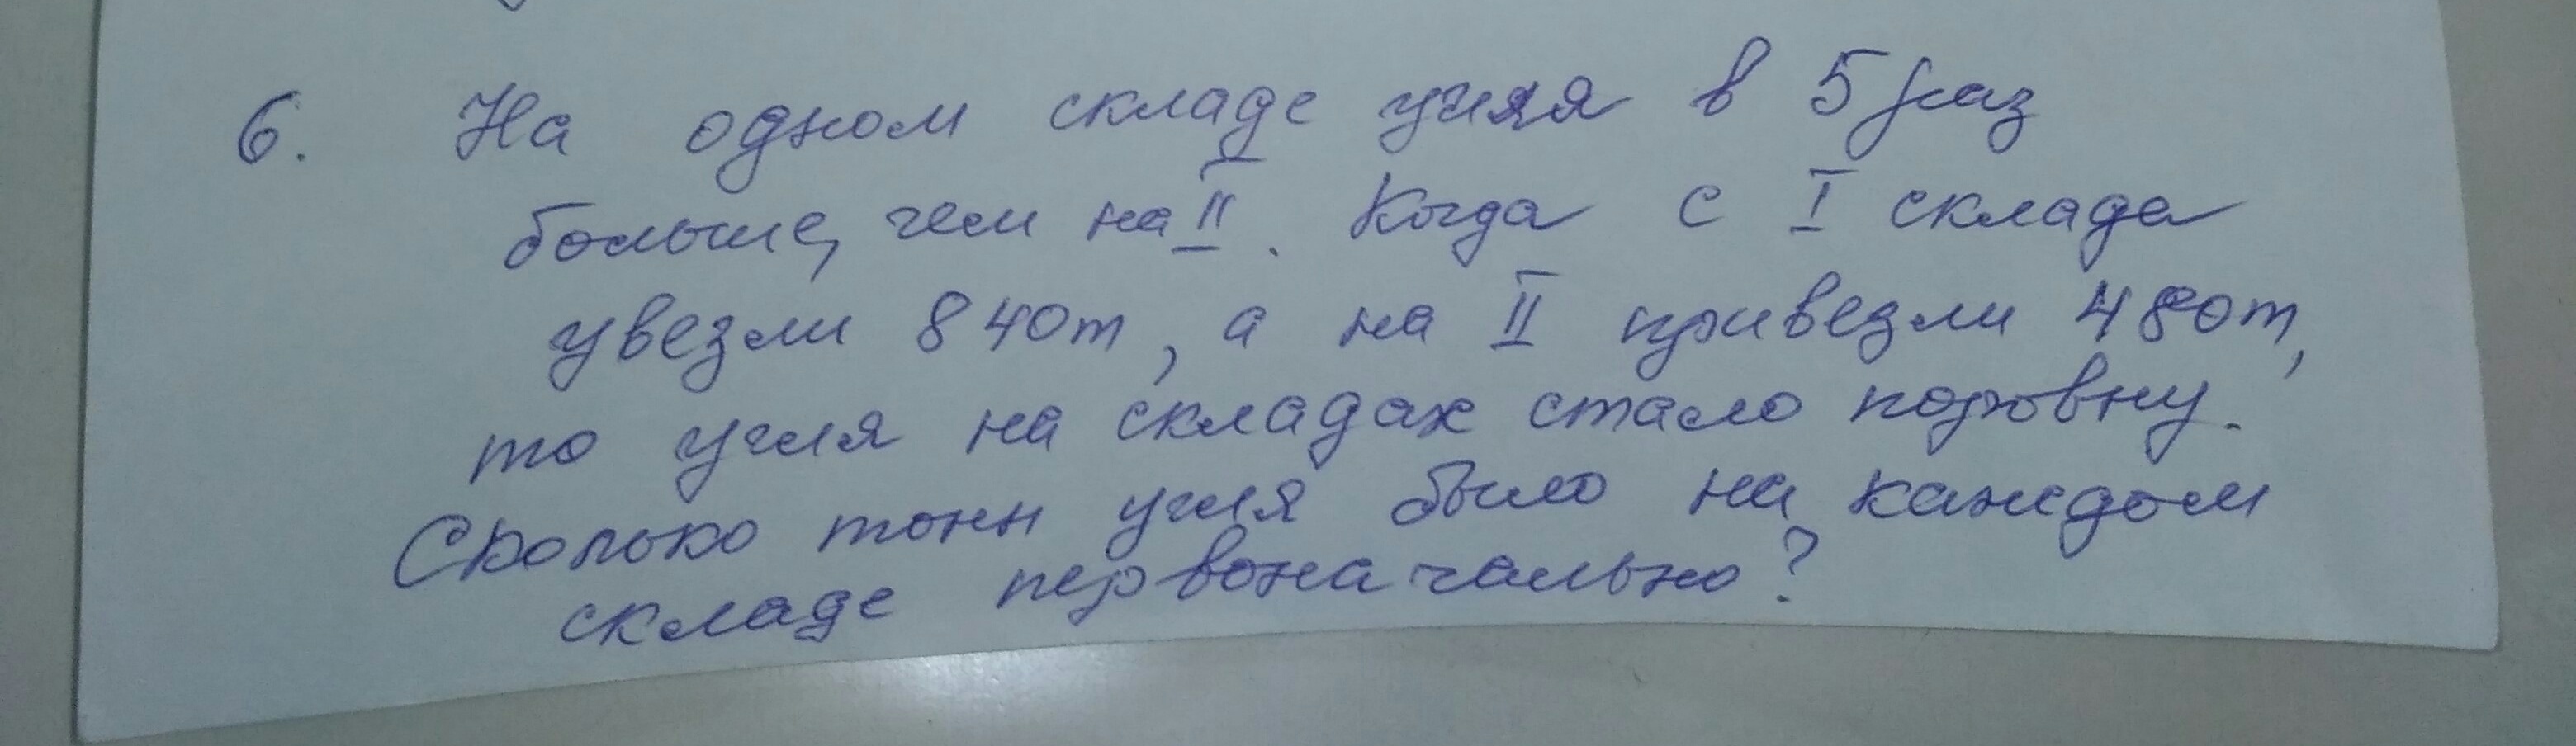 6. На одном складе угля в 5 раз
больше, чем на II. Когда с I склада
увезли 840т, а на II привезли 480т,
то угля на складах стало поровну.
Сколько тонн угля было на каждом
складе первоначально?